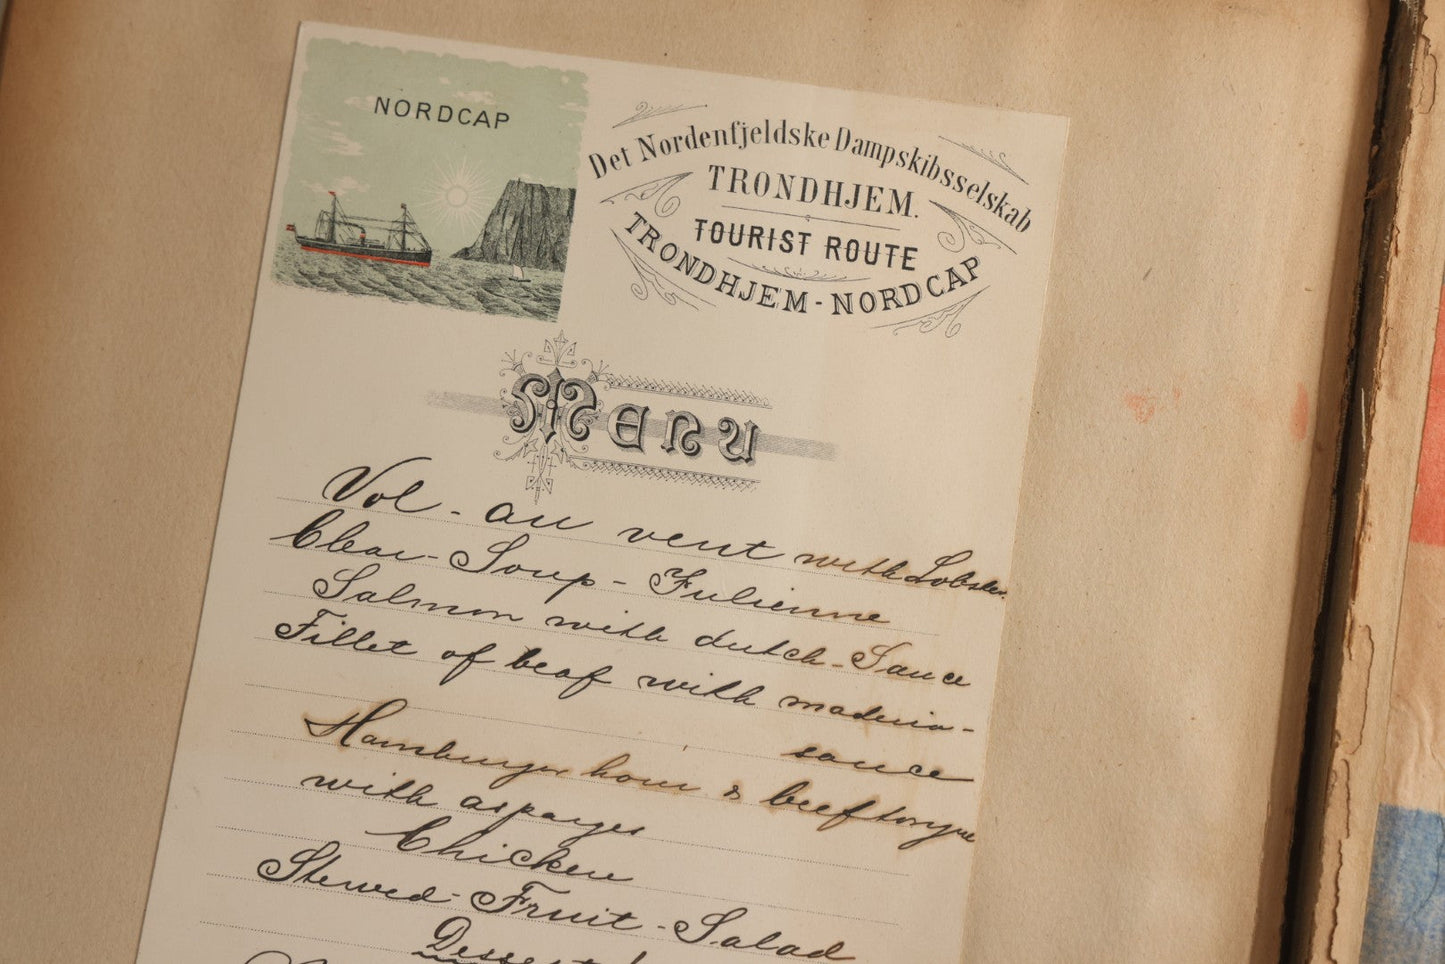 NORDCAP
Det Nordenfjeldske Dampskibsselskab
TRONDHJEM.
TOURIST ROUTE
TRONDHJEM - NORDCAP
Menu
Vol - au vent with Lobster.
Clear - Soup - Julienne
Salmon with dutch - Sauce
Fillet of beaf with maderia -
sauce
Hamburger ham & beeftongue
with asparges
Chicken
Stewed - Fruit - Salad
Dessert